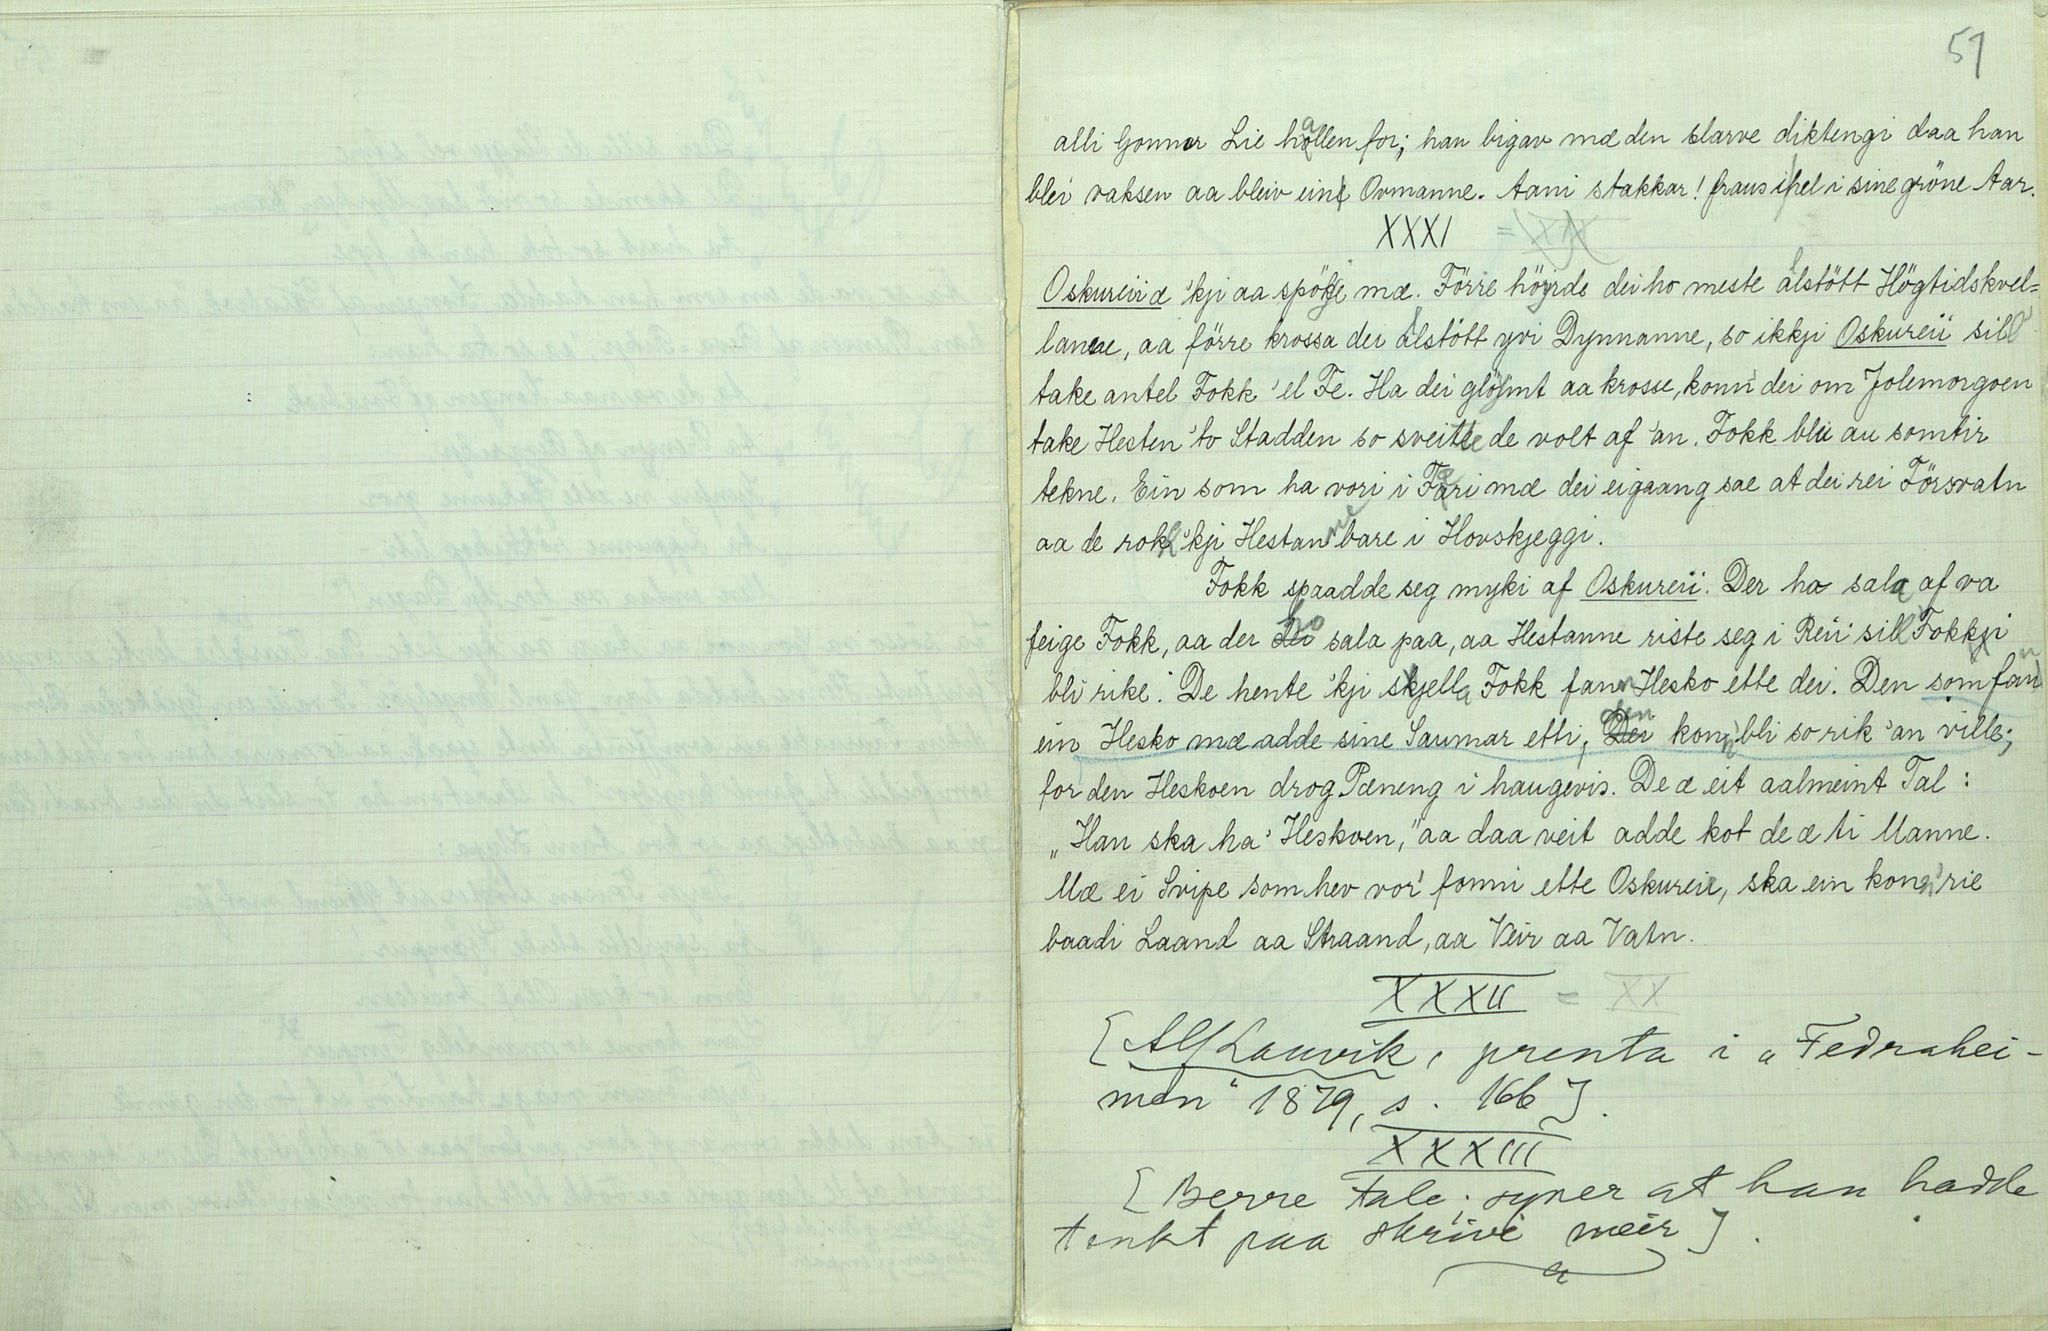 51
alli Gonnar Lie hallen for; han bigav mæ den slarve diktengi daa han
blei vaksen aa bleiv ein Ovmanne. Aani stakkar! fraus ihel i sine gröne Aar.
XXXI = XIX
Oskureii æ 'kji aa spöke mæ. Förre höyrde dei ho meste alstött Högtidskvel=
lanne, aa förre krossa dei alstött yvi Dynnanne, so ikkji Oskureii sill
take antel Fokk 'el Fe. Ha dei glöymt aa krosse, konn' dei om Jolemorgoen
take Hesten 'to Stadden so sveitte de volt af 'an. Fokk blei au somtir
tekne. Ein som ha vori i Færi mæ dei eigaang sae at dei rei Försvatn
aa de rokk 'kji Hestanne bare i Hovskjeggi.
Fokk spaadde seg myki af Oskureii. Der ho sala af va
feige Fokk, aa der ho sala paa, aa Hestanne riste seg i Reii sill Fokki
bli rike. De hente 'kji skjella Fokk fann Hesko ette dei. Den som fann
ein Hesko mæ adde sine Saumar etti, den konn' bli so rik 'an ville;
for den Heskoen drog Pæneng i haugevis. De æ eit aalmeint Tal:
„Han ska ha' Heskoen," aa daa veit adde kot de æ ti Manne.
Mæ ei Svipe som hev vor' fonni ette Oskureii, ska ein konn' rie
baadi Laand aa Straand, aa Veir aa Vatn.
XXXII = XX
[Alf Lauvik, prenta i „Fedrahei-
men" 1879, s. 166].
XXXIII
[Berre tale; syner at han hadde
tenkt paa skrive meir].